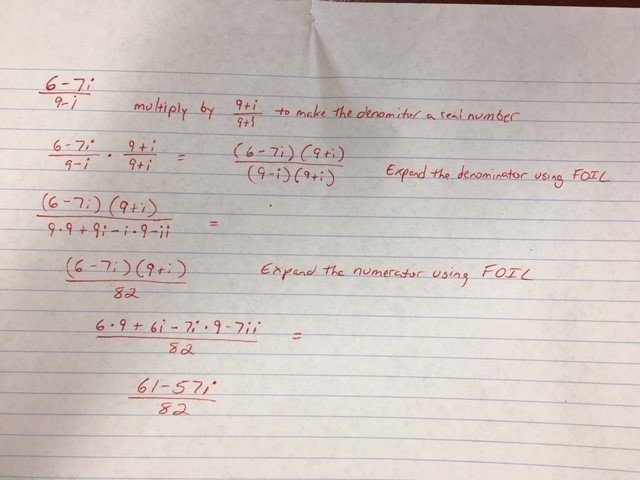 6-7i
9-i
multiply by 9+i/9+i to make the denomitor a real number
6-7i/9-i · 9+i/9+i = (6-7i)(9+i)/(9-i)(9+i) Expand the denominator using FOIL
(6-7i)(9+i)
9·9+9i-i·9-ii =
(6-7i)(9+i) Expand the numerator using FOIL
82
6·9+6i-7i·9-7ii =
82
61-57i
82